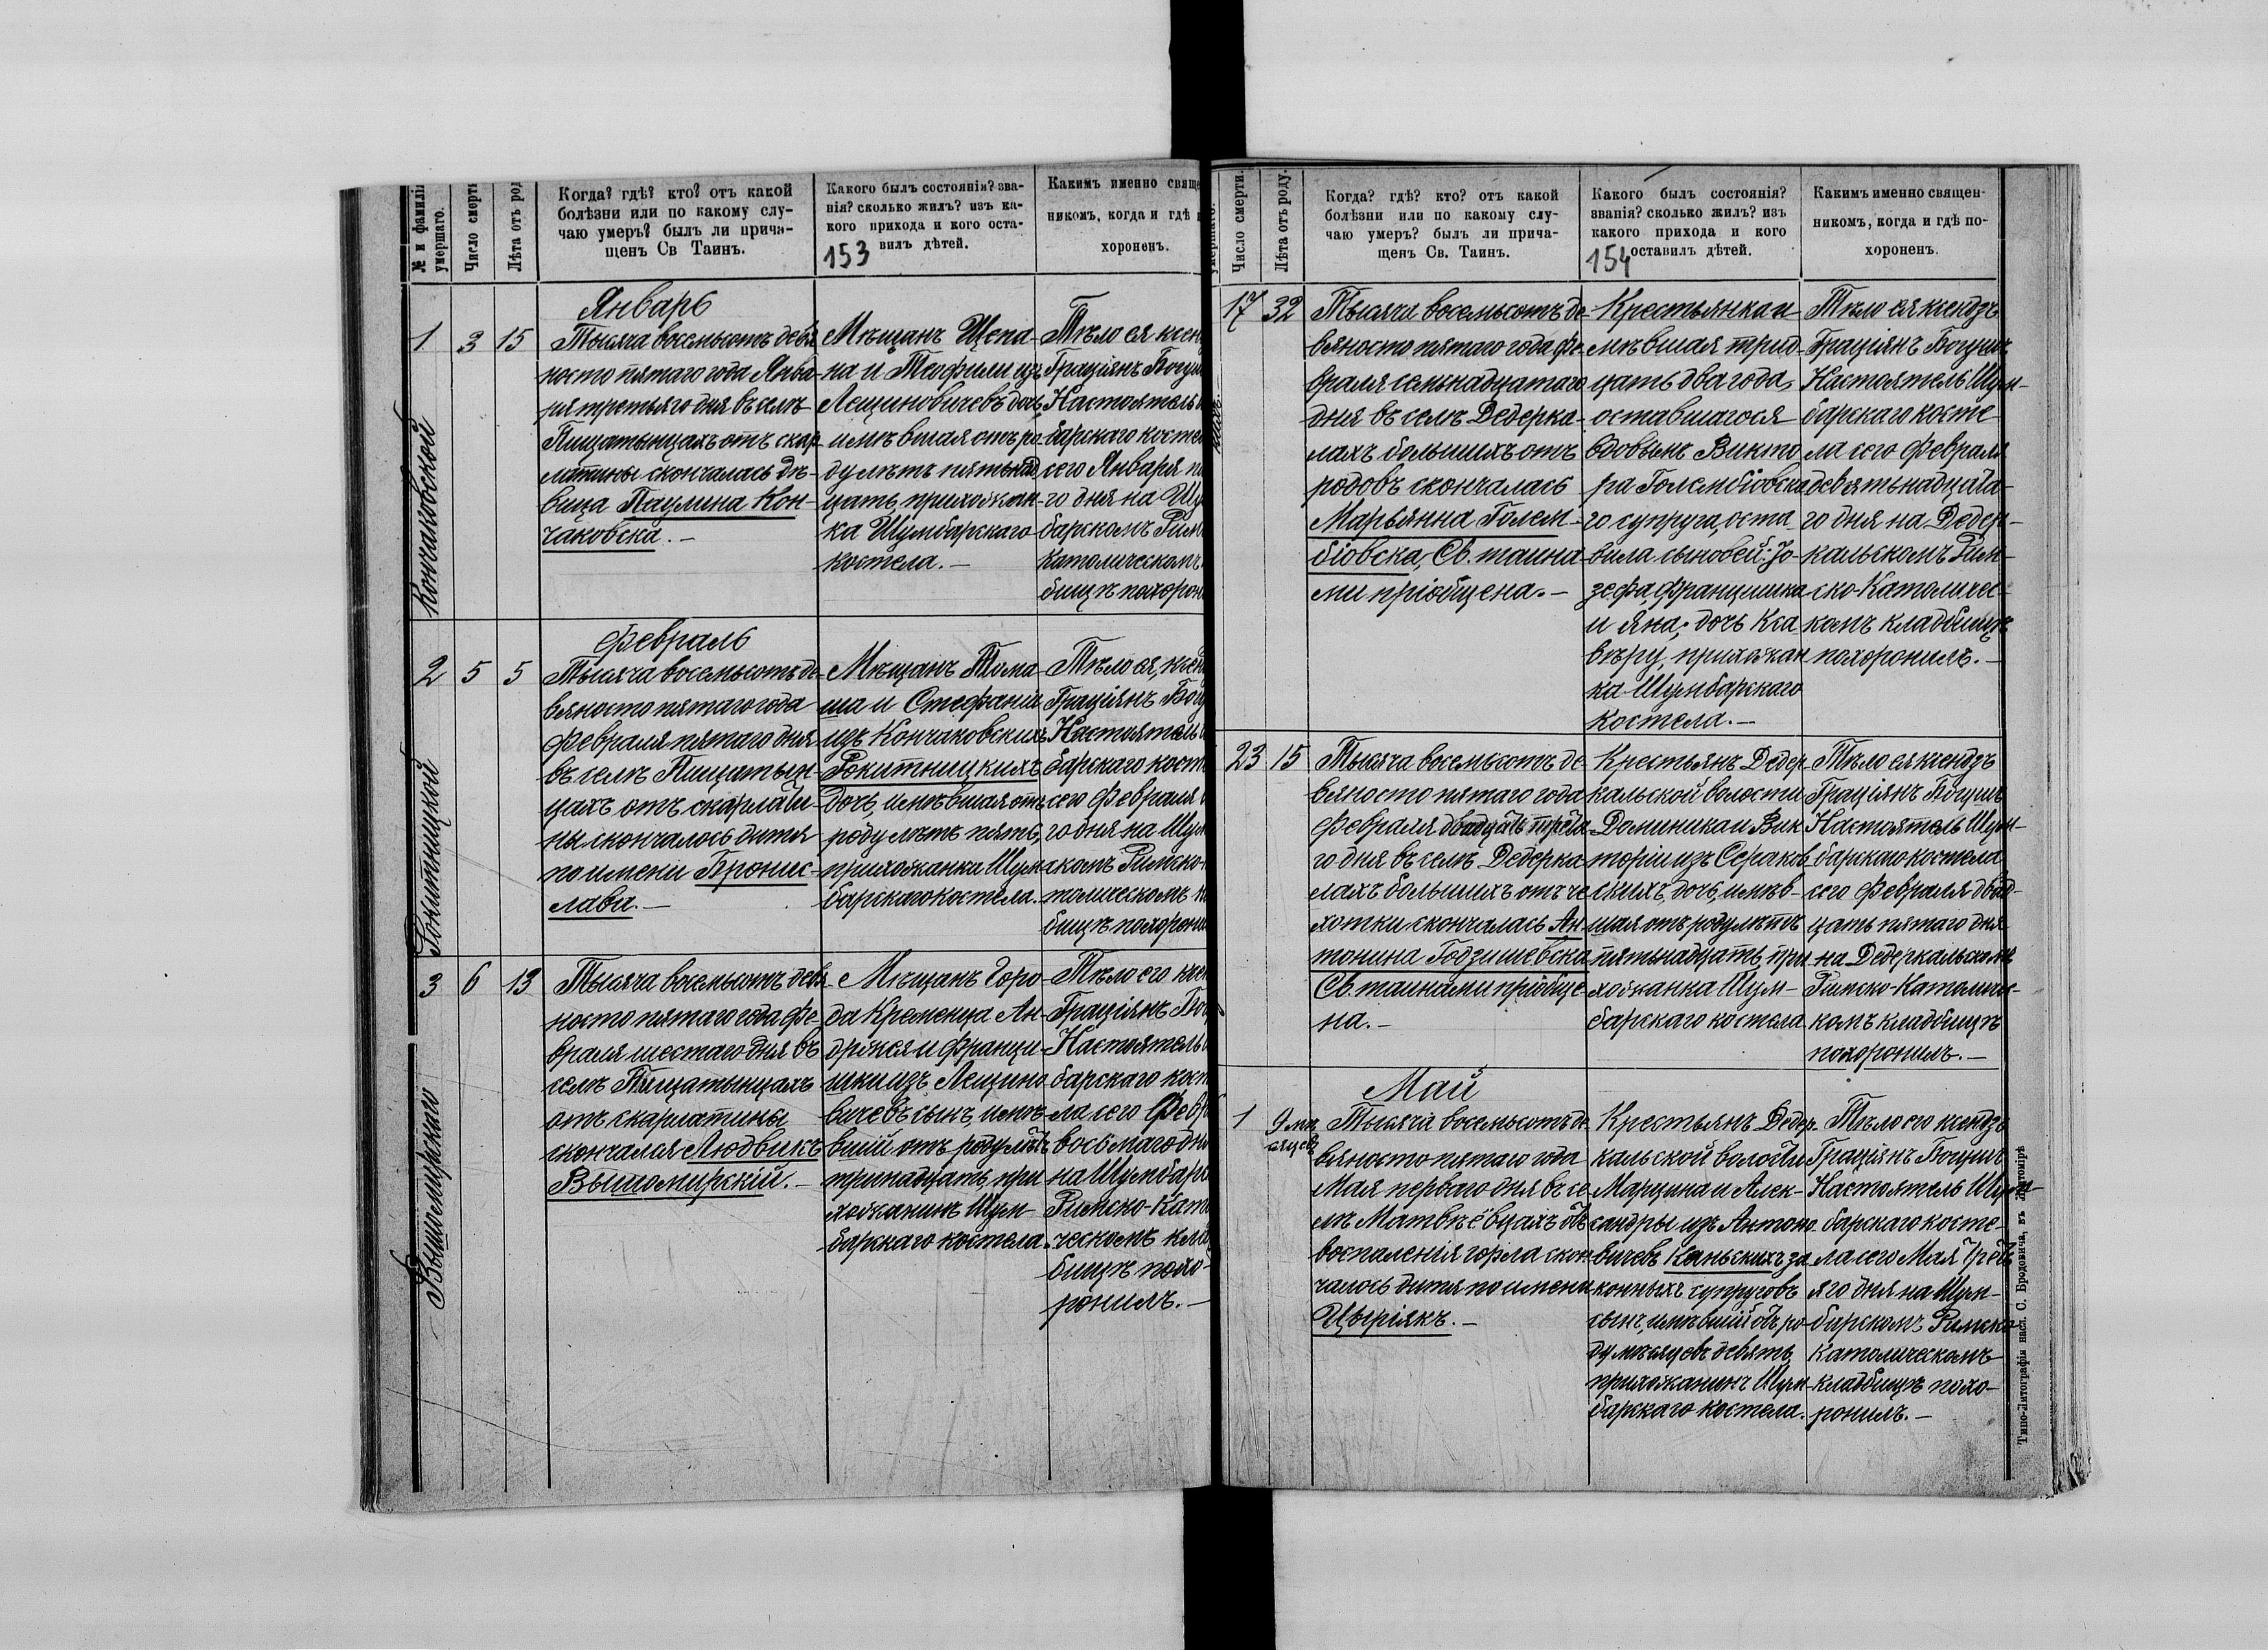 № и фамилі
умершаго.
Число смерти
Лѣта отъ род
Когда? гдѣ? кто? отъ какой
болѣзни или по какому слу-
чаю умеръ? былъ ли прича-
щенъ Св Таинъ.
Какого былъ состоянія? зва-
нія? сколько жилъ? изъ ка-
кого прихода и кого оста-
вилъ дѣтей.
153
Какимъ именно свяще
никомъ, когда и гдѣ
хороненъ.
1
Кончаковской
3
15
Январь
Тысяча восемьсотъ девя
носто пятаго года Янва-
ря третьяго дня въ селѣ
Пищатынцахъ отъ скар-
латины скончалась дѣ-
вица Паулина Кон-
чаковска.-
Мѣщанъ Щепа-
на и Теофили изъ
Лещиновичевъ дочь
имѣвшая отъ ро-
ду лѣтъ пятьнад
цать, прихожан-
ка Шумбарскаго
костела.-
Тѣло ея ксен
Граціянъ Богу
Настоятель
барскаго косте
сего Января
го дня на Шу
барскомъ Рим
католическомъ
бищѣ похорон
2
Рокитницкой
5
5
Февраль
Тысяча восемьсотъ де-
вяносто пятаго года
Февраля пятаго дня
въ селѣ Пищатын-
цахъ отъ скарлати-
ны скончалось дитя
по имени Бронис-
лава.-
Мѣщанъ Тома-
ша и Стефании
изъ Кончаковскихъ
Рокитницкихъ
дочь, имѣвшая отъ
роду лѣтъ пять,
прихожанка Шум-
барскаго костела.
Тѣло ея, ксен
Граціянъ Богу
Настоятель
барскаго кост
сего Февраля
го дня на Шум
скомъ Римско-
толическомъ
бищѣ похорони
3
Вышомирскаго
6
13
Тысяча восемьсотъ девя
носто пятаго года Фе-
враля шестаго дня въ
селѣ Пищатынцахъ
отъ скарлатины
скончался Людвикъ
Вышомирскій.-
Мѣщанъ Горо-
да Кременца Ан-
држея и Франци-
шки изъ Лещино-
вичевъ сынъ, имѣ-
вшій отъ роду лѣтъ
тринадцать, при
хожанинъ Шум-
барскаго костела.
Тѣло его ксен
Граціянъ Бог
Настоятель
барскаго кост
ла сего Февр
восьмаго дня
на Шумбарс
Римско-Кат
ческомъ кла
бищѣ похо-
ронилъ.-
умершаго.
Число смерти.
Лѣта отъ роду.
Когда? гдѣ? кто? отъ какой
болѣзни или по какому слу-
чаю умеръ? былъ ли прича-
щенъ Св. Таинъ.
Какого былъ состоянія?
званія? сколько жилъ? изъ
какого прихода и кого
оставилъ дѣтей.
154
Какимъ именно священ-
никомъ, когда и гдѣ по-
хороненъ.
17
32
Тысяча восемьсотъ де-
вяносто пятаго года Фе-
враля семнадцатаго
дня въ селѣ Дедерка-
лахъ большихъ отъ
родовъ скончалась
Марьянна Голем-
біовска, Св. таина-
ми пріобщена.-
Крестьянка и
мѣвшая трид-
цать два года,
оставшагося
вдовымъ Викто
ра Голембіовска
го супруга, оста
вила сыновей: Іо-
зефа, Францишка
и Яна; дочь Кса
вѣру, прихожан
ка Шумбарскаго
костела.-
Тѣло ея ксендзъ
Граціянъ Богушъ
Настоятель Шум-
барскаго косте
ла сего Февраля
девятьнадцата-
го дня на Дедер-
кальскомъ Рим-
ско-Католичес-
комъ кладбищѣ
похоронилъ.-
23
15
Тысяча восемьсотъ де-
вяносто пятаго года
Февраля двадцать третья
го дня въ селѣ Дедерка
лахъ большихъ отъ че
хотки скончалась Ан-
тонина Годзишевска
Св. таинами пріобще-
на.-
Крестьянъ Дедер
кальской волости
Доминика и Вик
торіи изъ Сераков
скихъ, дочь, имѣв-
шая отъ роду лѣтъ
пятьнадцать, при
хожанка Шум-
барскаго костела
Тѣло ея ксендзъ
Граціянъ Богушъ
Настоятель Шум-
барскаго костела
сего Февраля двад-
цать пятаго дня
на Дедеркальскомъ
Римско-Католичес-
комъ кладбищѣ
похоронилъ.-
1
9 мѣ
сяцевъ
Май
Тысяча восемьсотъ де-
вяносто пятаго года
Мая перваго дня въ се-
лѣ Матвѣёвцахъ отъ
воспаленія горла скон
чалось дитя по имени
Цырiякъ.-
Крестьянъ Дедер-
кальской волости
Марцина и Алек-
сандры изъ Антоно-
вичевъ Каньскихъ за
конныхъ супруговъ
сынъ, имѣвшій отъ ро-
ду мѣсяцевъ девять,
прихожанинъ Шум-
барскаго костела.
Тѣло его ксендзъ
Граціянъ Богушъ
Настоятель Шум-
барскаго косте-
ла сего Мая треть
яго дня на Шум-
барскомъ Римско
Католическомъ
кладбищѣ похо-
ронилъ.-
Типо-Литографія насл. С. Бродовича, въ Житомірѣ